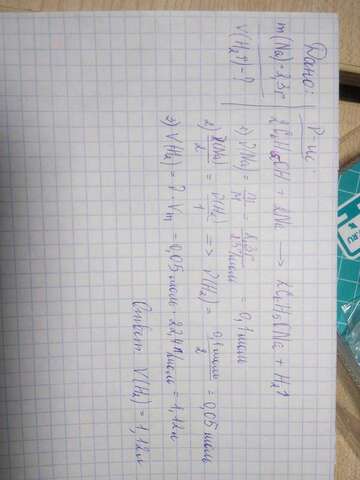 Дано:
m(Na)=2,3г
V(H₂↑)-?
Р-ие:
2C₂H₅OH + 2Na → 2C₂H₅ONa + H₂↑
1) ν(Na) = m/M = 2,3г/23г/моль = 0,1 моль
2) ν(Na)/2 = ν(H₂)/1 => ν(H₂) = 0,1 моль/2 = 0,05 моль
3) V(H₂) = ν · Vm = 0,05 моль · 22,4 л/моль = 1,12л
Ответ: V(H₂) = 1,12л
.RU